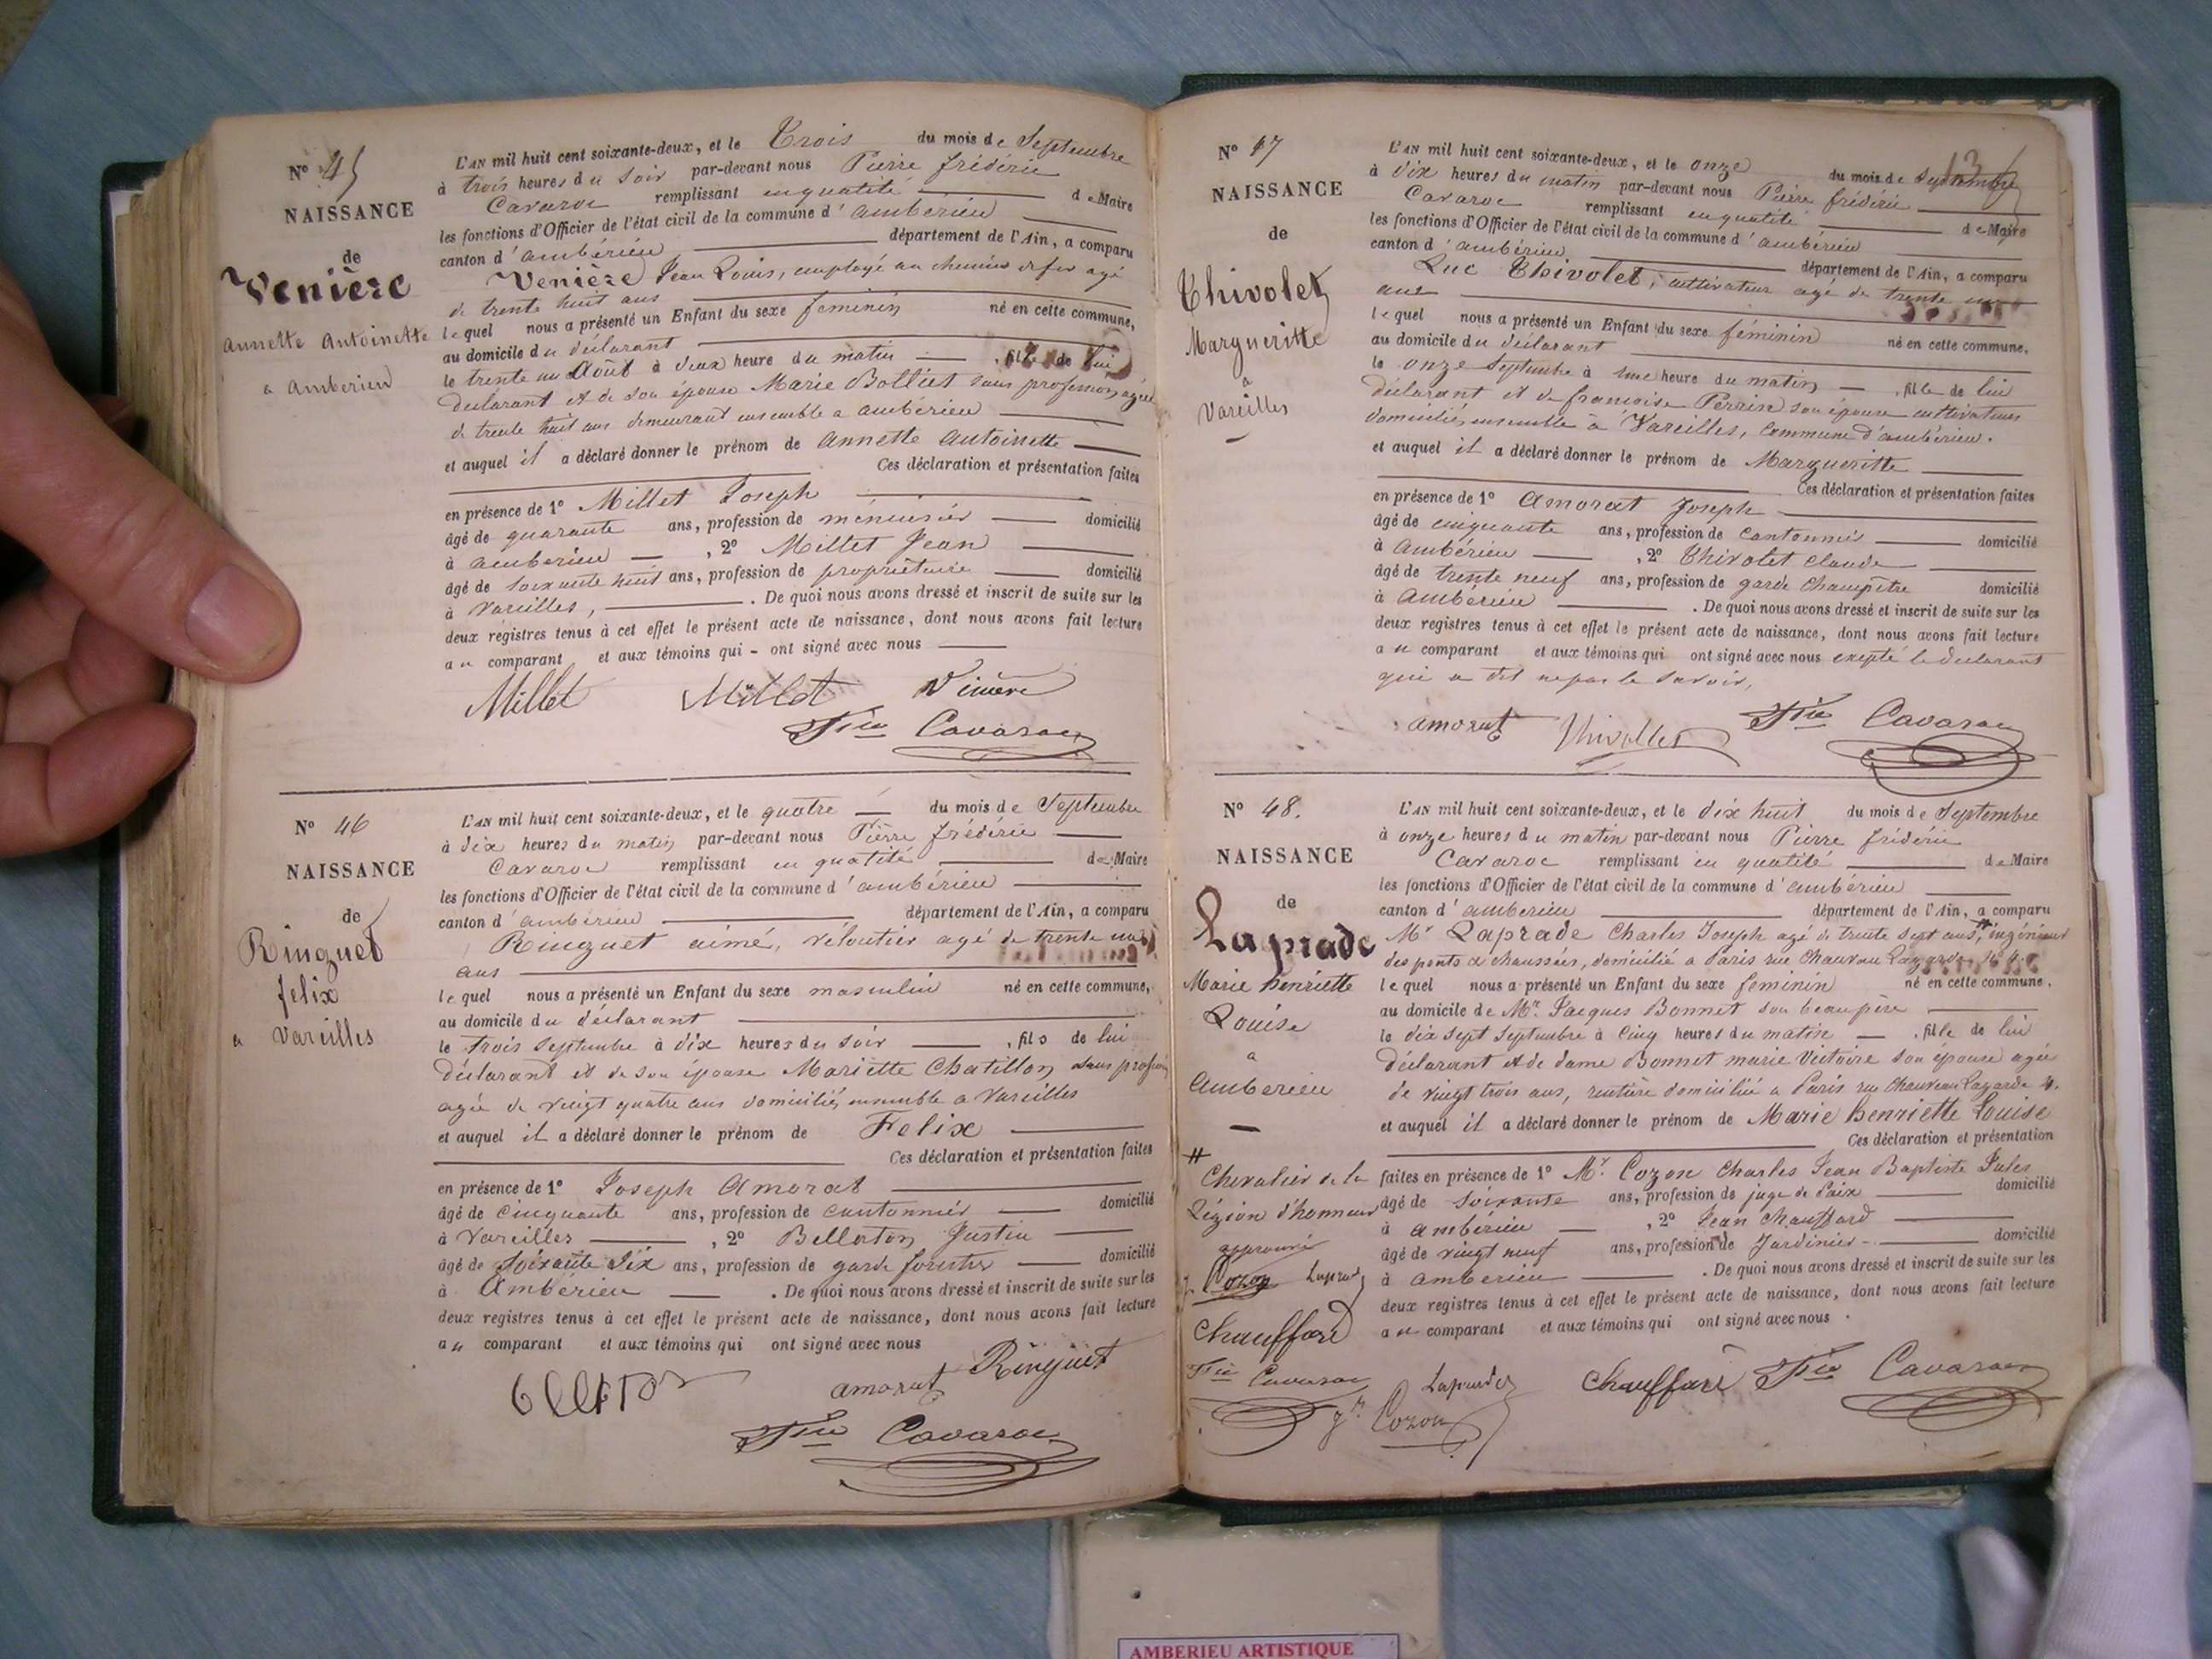 Nº 45
NAISSANCE
de
Venière
Annette Antoinette
a Amberieu
L'AN mil huit cent soixante-deux, et le Trois du mois de Septembre
à trois heures du soir par-devant nous Pierre frédéric
Cavaroc remplissant en qualité de Maire
les fonctions d'Officier de l'état civil de la commune d'ambérieu
canton d'ambérieu département de l'Ain, a comparu
Venière Jean Louis, employé au chemin de fer agé
de trente huit ans
lequel nous a présenté un Enfant du sexe feminin né en cette commune,
au domicile du déclarant
le trente un Août à deux heure du matin , fille de lui
déclarant et de son épouse Marie Bolliet sans profession, agée
de trente huit ans demeurant ensemble a ambérieu
et auquel il a déclaré donner le prénom de Annette Antoinette
Ces déclaration et présentation faites
en présence de 1º Millet Joseph
âgé de quarante ans, profession de menuisier domicilié
à amberieu , 2º Millet Jean
âgé de soixante huit ans, profession de propriétaire domicilié
à Vareilles, . De quoi nous avons dressé et inscrit de suite sur les
deux régistres tenus à cet effet le présent acte de naissance, dont nous avons fait lecture
au comparant et aux témoins qui - ont signé avec nous
Millet Millet Vinière
Fric Cavaroc
Nº 46
NAISSANCE
de
Ringuet
felix
a Vareilles
L'AN mil huit cent soixante-deux, et le quatre du mois de Septembre
à dix heures du matin par-devant nous Pierre frédéric
Cavaroc remplissant en qualité de Maire
les fonctions d'Officier de l'état civil de la commune d'ambérieu
canton d'ambérieu département de l'Ain, a comparu
Ringuet aimé, agé de trente un
ans
lequel nous a présenté un Enfant du sexe masculin né en cette commune,
au domicile du déclarant
le trois Septembre à dix heures du soir , fils de lui
déclarant et de son épouse Mariette Chatillon sans profession
agée de vingt quatre ans domiciliés ensemble a Vareilles
et auquel il a déclaré donner le prénom de Felix
Ces déclaration et présentation faites
en présence de 1º Joseph Amorat
âgé de Cinquante ans, profession de cantonnier domicilié
à Vareilles , 2º Bellaton Justin
âgé de Soixante Dix ans, profession de garde forestier domicilié
à Ambérieu . De quoi nous avons dressé et inscrit de suite sur les
deux régistres tenus à cet effet le présent acte de naissance, dont nous avons fait lecture
au comparant et aux témoins qui ont signé avec nous
amorat Ringuet
Fric Cavaroc
Nº 47
NAISSANCE
de
Thivolet
Margueritte
a
Vareilles
L'AN mil huit cent soixante-deux, et le onze du mois de Septembre
à dix heures du matin par-devant nous Pierre frédéric
Cavaroc remplissant en qualité de Maire
les fonctions d'Officier de l'état civil de la commune d'ambérieu
canton d'ambérieu département de l'Ain, a comparu
Luc Thivolet, cultivateur agé de trente
ans
lequel nous a présenté un Enfant du sexe féminin né en cette commune,
au domicile du déclarant
le onze Septembre à une heure du matin , fille de lui
déclarant et de françoise Perrin son épouse cultivateurs
domiciliés ensemble à Vareilles, Commune d'ambérieu.
et auquel il a déclaré donner le prénom de Margueritte
Ces déclaration et présentation faites
en présence de 1º Amorat Joseph
âgé de cinquante ans, profession de Cantonnier domicilié
à Ambérieu , 2º Thivolet claude
âgé de trente neuf ans, profession de garde Champêtre domicilié
à Ambérieu . De quoi nous avons dressé et inscrit de suite sur les
deux registres tenus à cet effet le présent acte de naissance, dont nous avons fait lecture
au comparant et aux témoins qui ont signé avec nous excepté le declarant
qui a dit ne pas le savoir,
amorat Thivollet Fric Cavaroc
Nº 48.
NAISSANCE
de
Laprade
Marie henriette
Louise
a
Amberieu
Chevalier de la
Légion d'honneur
approuvé
Cozon Laprade
Chauffard
Fric Cavaroc
L'AN mil huit cent soixante-deux, et le dix huit du mois de Septembre
à onze heures du matin par-devant nous Pierre frédéric
Cavaroc remplissant en qualité de Maire
les fonctions d'Officier de l'état civil de la commune d'ambérieu
canton d'amberieu département de l'Ain, a comparu
Mr Laprade Charles Joseph agé de trente sept ans, # ingénieur
des ponts & chaussées, domicilié a Paris rue Chauveau Lagarde, nº 4.
lequel nous a présenté un Enfant du sexe feminin né en cette commune.
au domicile de Mr. Jacques Bonnet son beau père
le dix sept Septembre à Cinq heures du matin , fille de lui
déclarant et de dame Bonnet marie Victoire son épouse agée
de vingt trois ans, rentière domiciliée a Paris rue Chauveau Lagarde 4.
et auquel il a déclaré donner le prénom de Marie henriette Louise
Ces déclaration et présentation
faites en présence de 1º Mr. Cozon Charles Jean Baptiste Jules
âgé de soixante ans, profession de juge de Paix domicilié
à ambérieu , 2º Jean Chauffard
âgé de vingt neuf ans, profession de Jardinier domicilié
à amberieu . De quoi nous avons dressé et inscrit de suite sur les
deux registres tenus à cet effet le présent acte de naissance, dont nous avons fait lecture
au comparant et aux témoins qui ont signé avec nous .
Laprade Chauffard Fric Cavaroc
Cozon
AMBERIEU ARTISTIQUE